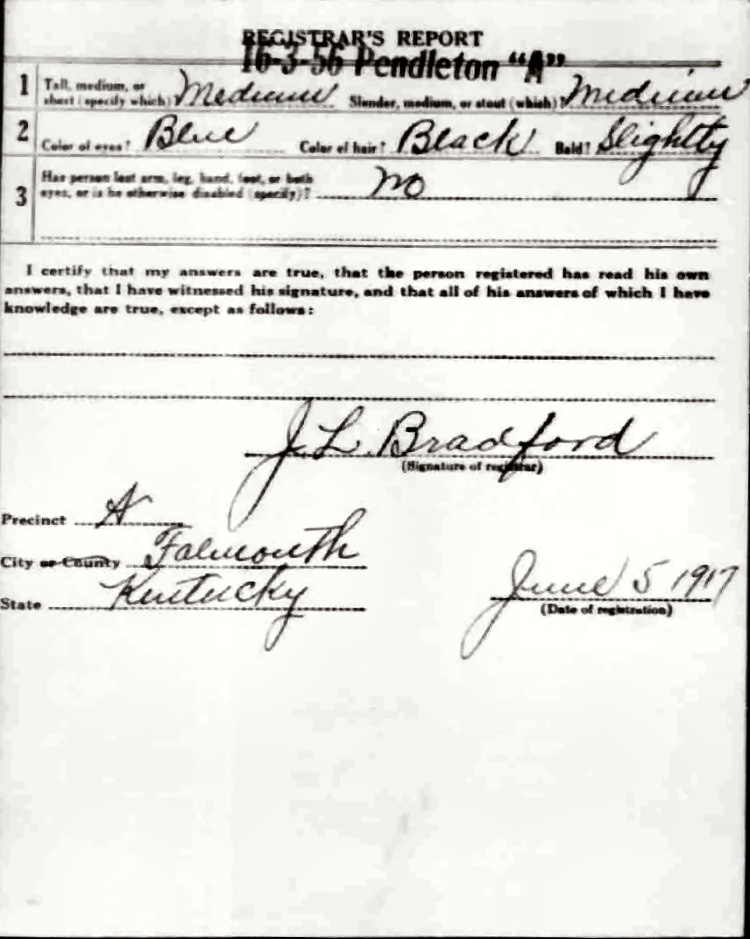 REGISTRAR'S REPORT
16-3-56 Pendleton "A"
1 Tall, medium, or short (specify which)? Medium Slender, medium, or stout (which)? Medium
2 Color of eyes? Blue Color of hair? Black Bald? Slightly
3 Has person lost arm, leg, hand, foot, or both
eyes, or is he otherwise disabled (specify)? no
I certify that my answers are true, that the person registered has read his own
answers, that I have witnessed his signature, and that all of his answers of which I have
knowledge are true, except as follows:
J. L. Bradford
(Signature of registrar)
Precinct A
City or County Falmouth
State Kentucky
June 5 1917
(Date of registration)